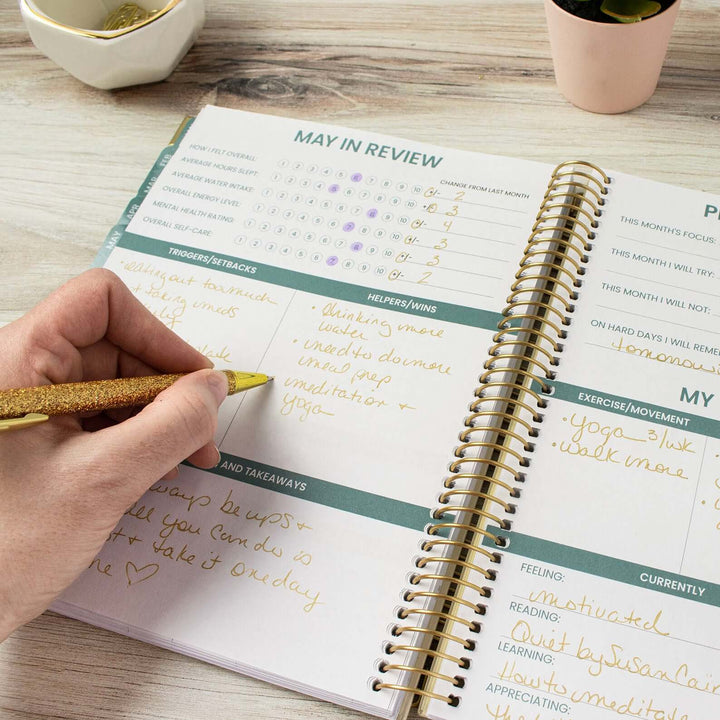 MAY IN REVIEW
HOW I FELT OVERALL: 1 2 3 4 5 6 7 8 9 10
CHANGE FROM LAST MONTH
AVERAGE HOURS SLEPT: 1 2 3 4 5 6 7 8 9 10 +/- 2
AVERAGE WATER INTAKE: 1 2 3 4 5 6 7 8 9 10 3
OVERALL ENERGY LEVEL: 1 2 3 4 5 6 7 8 9 10 +/- 4
MENTAL HEALTH RATING: 1 2 3 4 5 6 7 8 9 10 +/- 3
OVERALL SELF-CARE: 1 2 3 4 5 6 7 8 9 10 +/- 3
+/- 2
FEB
MAR
APR
MAY
TRIGGERS/SETBACKS
eating out too much
taking meds
HELPERS/WINS
• drinking more
water
• need to do more
meal prep
meditation +
yoga
AND TAKEAWAYS
always be ups +
all you can do is
+ take it one day
♡
THIS MONTH'S FOCUS:
THIS MONTH I WILL TRY:
THIS MONTH I WILL NOT:
ON HARD DAYS I WILL REMEM
tomorrow i
MY
EXERCISE/MOVEMENT
• yoga 3/wk
• walk more
CURRENTLY
FEELING:
motivated
READING:
Quiet by Susan Cain
LEARNING:
How to meditate
APPRECIATING: